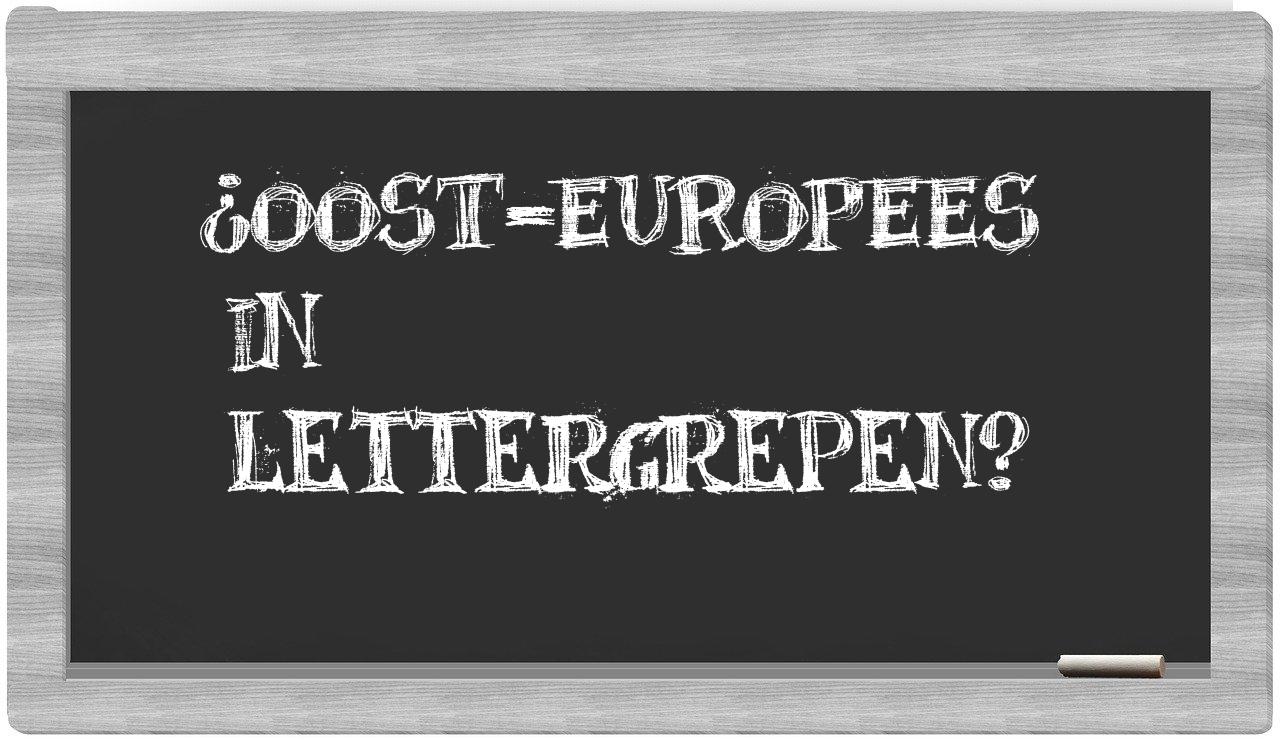 ¿OOST-EUROPEES
IN
LETTERGREPEN?